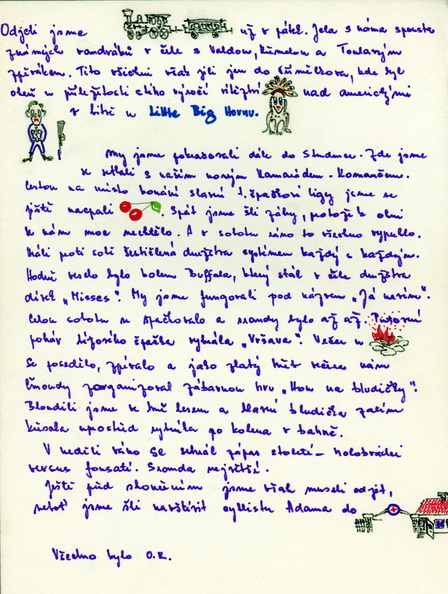 Odjeli jsme už v pátek. Jela s náma spousta
známých vandráků v čele s Valdou, a Toulavým
zpěvákem. Tito všichni však jeli jen do kde byl
oheň u příležitosti výročí vítězství nad americkými
v bitvě u Little Big Hornu.
My jsme pokračovali dále do Studence. Zde jsme
se setkali s naším novým kamarádem - Komančem.
Cestou na místo konání slavné 1. špačkové ligy jsme se
ještě nacpali . Spát jsme šli záhy, protože k ohni
se nám moc nechtělo. A v sobotu ráno to všechno vypuklo.
Hráli proti sobě družstva systémem každý s každým.
Hodně bylo kolem Buffala, který stál v čele družstva
dívek "Misses". My jsme fungovali pod názvem "Já nevím".
Celou sobotu se špačkovalo a srandy bylo až až. Putovní
pohár ligového špačka vyhrála "Vršava". Večer u
se posedělo, zpívalo a jako zlatý hřeb večera nám
zorganizoval zábavnou hru "Hon na bludičky".
Bloudili jsme ve tmě lesem a hlavní bludička zatím
kvákala uprostřed rybníka po kolena v bahně.
V neděli ráno se sehrál zápas století - holobrádci
versus fousatí. Sranda největší.
Ještě před skončením jsme však museli odjet,
neboť jsme šli navštívit cyklistu Adama do
Všechno bylo O.K.